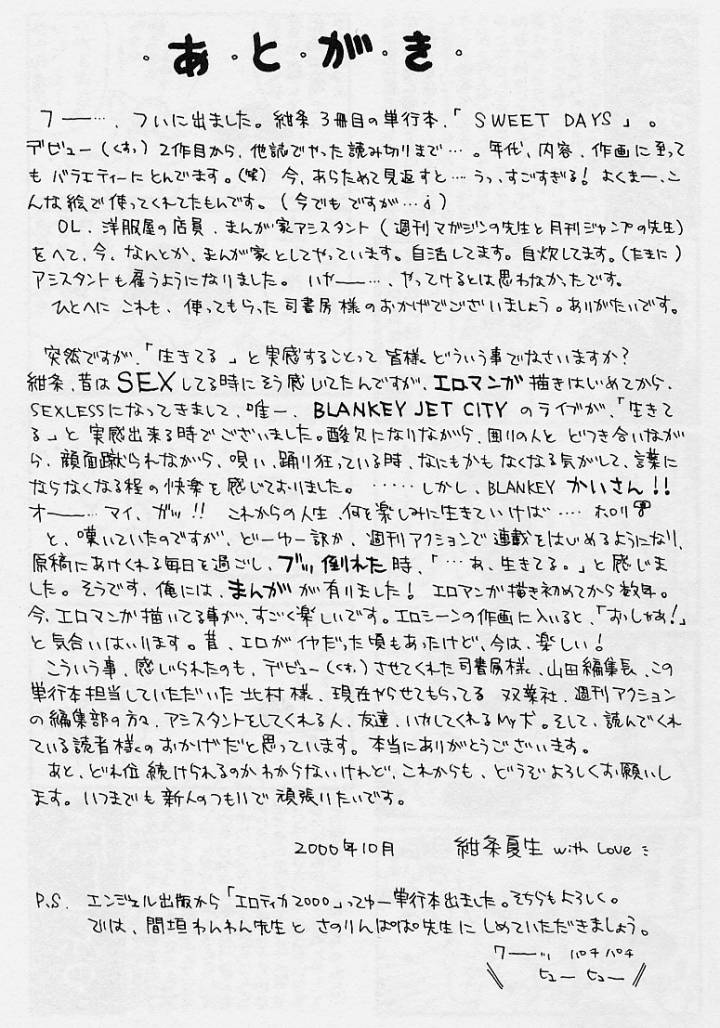 ・あ・と・が・き・
フー…、ついに出ました。紺条3冊目の単行本、「SWEET DAYS」。
デビュー(くすっ)2作目から、他誌でやった読み切りまで…。年代、内容、作画に至って
もバラエティーにとんでます。(笑)今、あらためて見返すと…うっ、すごすぎる!よくまー、こ
んな絵で使ってくれてたもんです。(今でもですが…;)
OL、洋服屋の店員、まんが家アシスタント(週刊マガジンの先生と月刊ジャンプの先生)
をへて、今、なんとか、まんが家としてやっています。自活してます。自炊してます。(たまに)
アシスタントも雇うようになりました。いやー…、やってけるとは思わなかったです。
ひとへにこれも、使ってもらった司書房様のおかげでございましょう。ありがたいです。
突然ですが、「生きてる」と実感することって皆様どういう事でなさいますか?
紺条、昔はSEXしてる時にそう感じてたんですが、エロマンガ描きはじめてから、
SEXLESSになってきまして、唯一、BLANKEY JET CITYのライブが、「生きて
る」と実感出来る時でございました。酸欠になりながら、囲りの人とどつき合いなが
ら、顔面蹴られながら、唄い、踊り狂っている時、なにもかもなくなる気がして、言葉に
ならなくなる程の快楽を感じておりました。……しかし、BLANKEYかいさん!!
オー…マイ、ガッ!!これからの人生、何を楽しみに生きていけば……ホロリ
と、嘆いていたのですが、どーゆー訳か、週刊アクションで連載をはじめるようになり、
原稿にあけくれる毎日を過ごし、ブッ倒れた時、「…あ、生きてる。」と感じま
した。そうです、俺には、まんがが有りました!エロマンガ描き初めてから数年。
今、エロマンが描いてる事が、すごく楽しいです。エロシーンの作画に入いると、「おっしゃあ!」
と気合いはいります。昔、エロがイヤだった頃もあったけど、今は、楽しい!
こういう事、感じられたのも、デビュー(くすっ)させてくれた司書房様、山田編集長、この
単行本担当していただいた北村様、現在やらせてもらってる双葉社、週刊アクション
の編集部の方々、アシスタントをしてくれる人、友達、いかしてくれるMy犬。そして、読んでくれ
ている読者様のおかげだと思っています。本当にありがとうございます。
あと、どれ位続けられるのかわからないけれど、これからも、どうぞよろしくお願いし
ます。いつまでも新人のつもりで頑張りたいです。
2000年10月 紺条夏生 with Love
P.S. エンジェル出版から「エロティカ2000」ってゆー単行本出ました。そちらもよろしく。
では、間垣わんわん先生とさのりんぱぱ先生にしめていただきましょう。
ワーッ パチパチ
ヒューヒュー